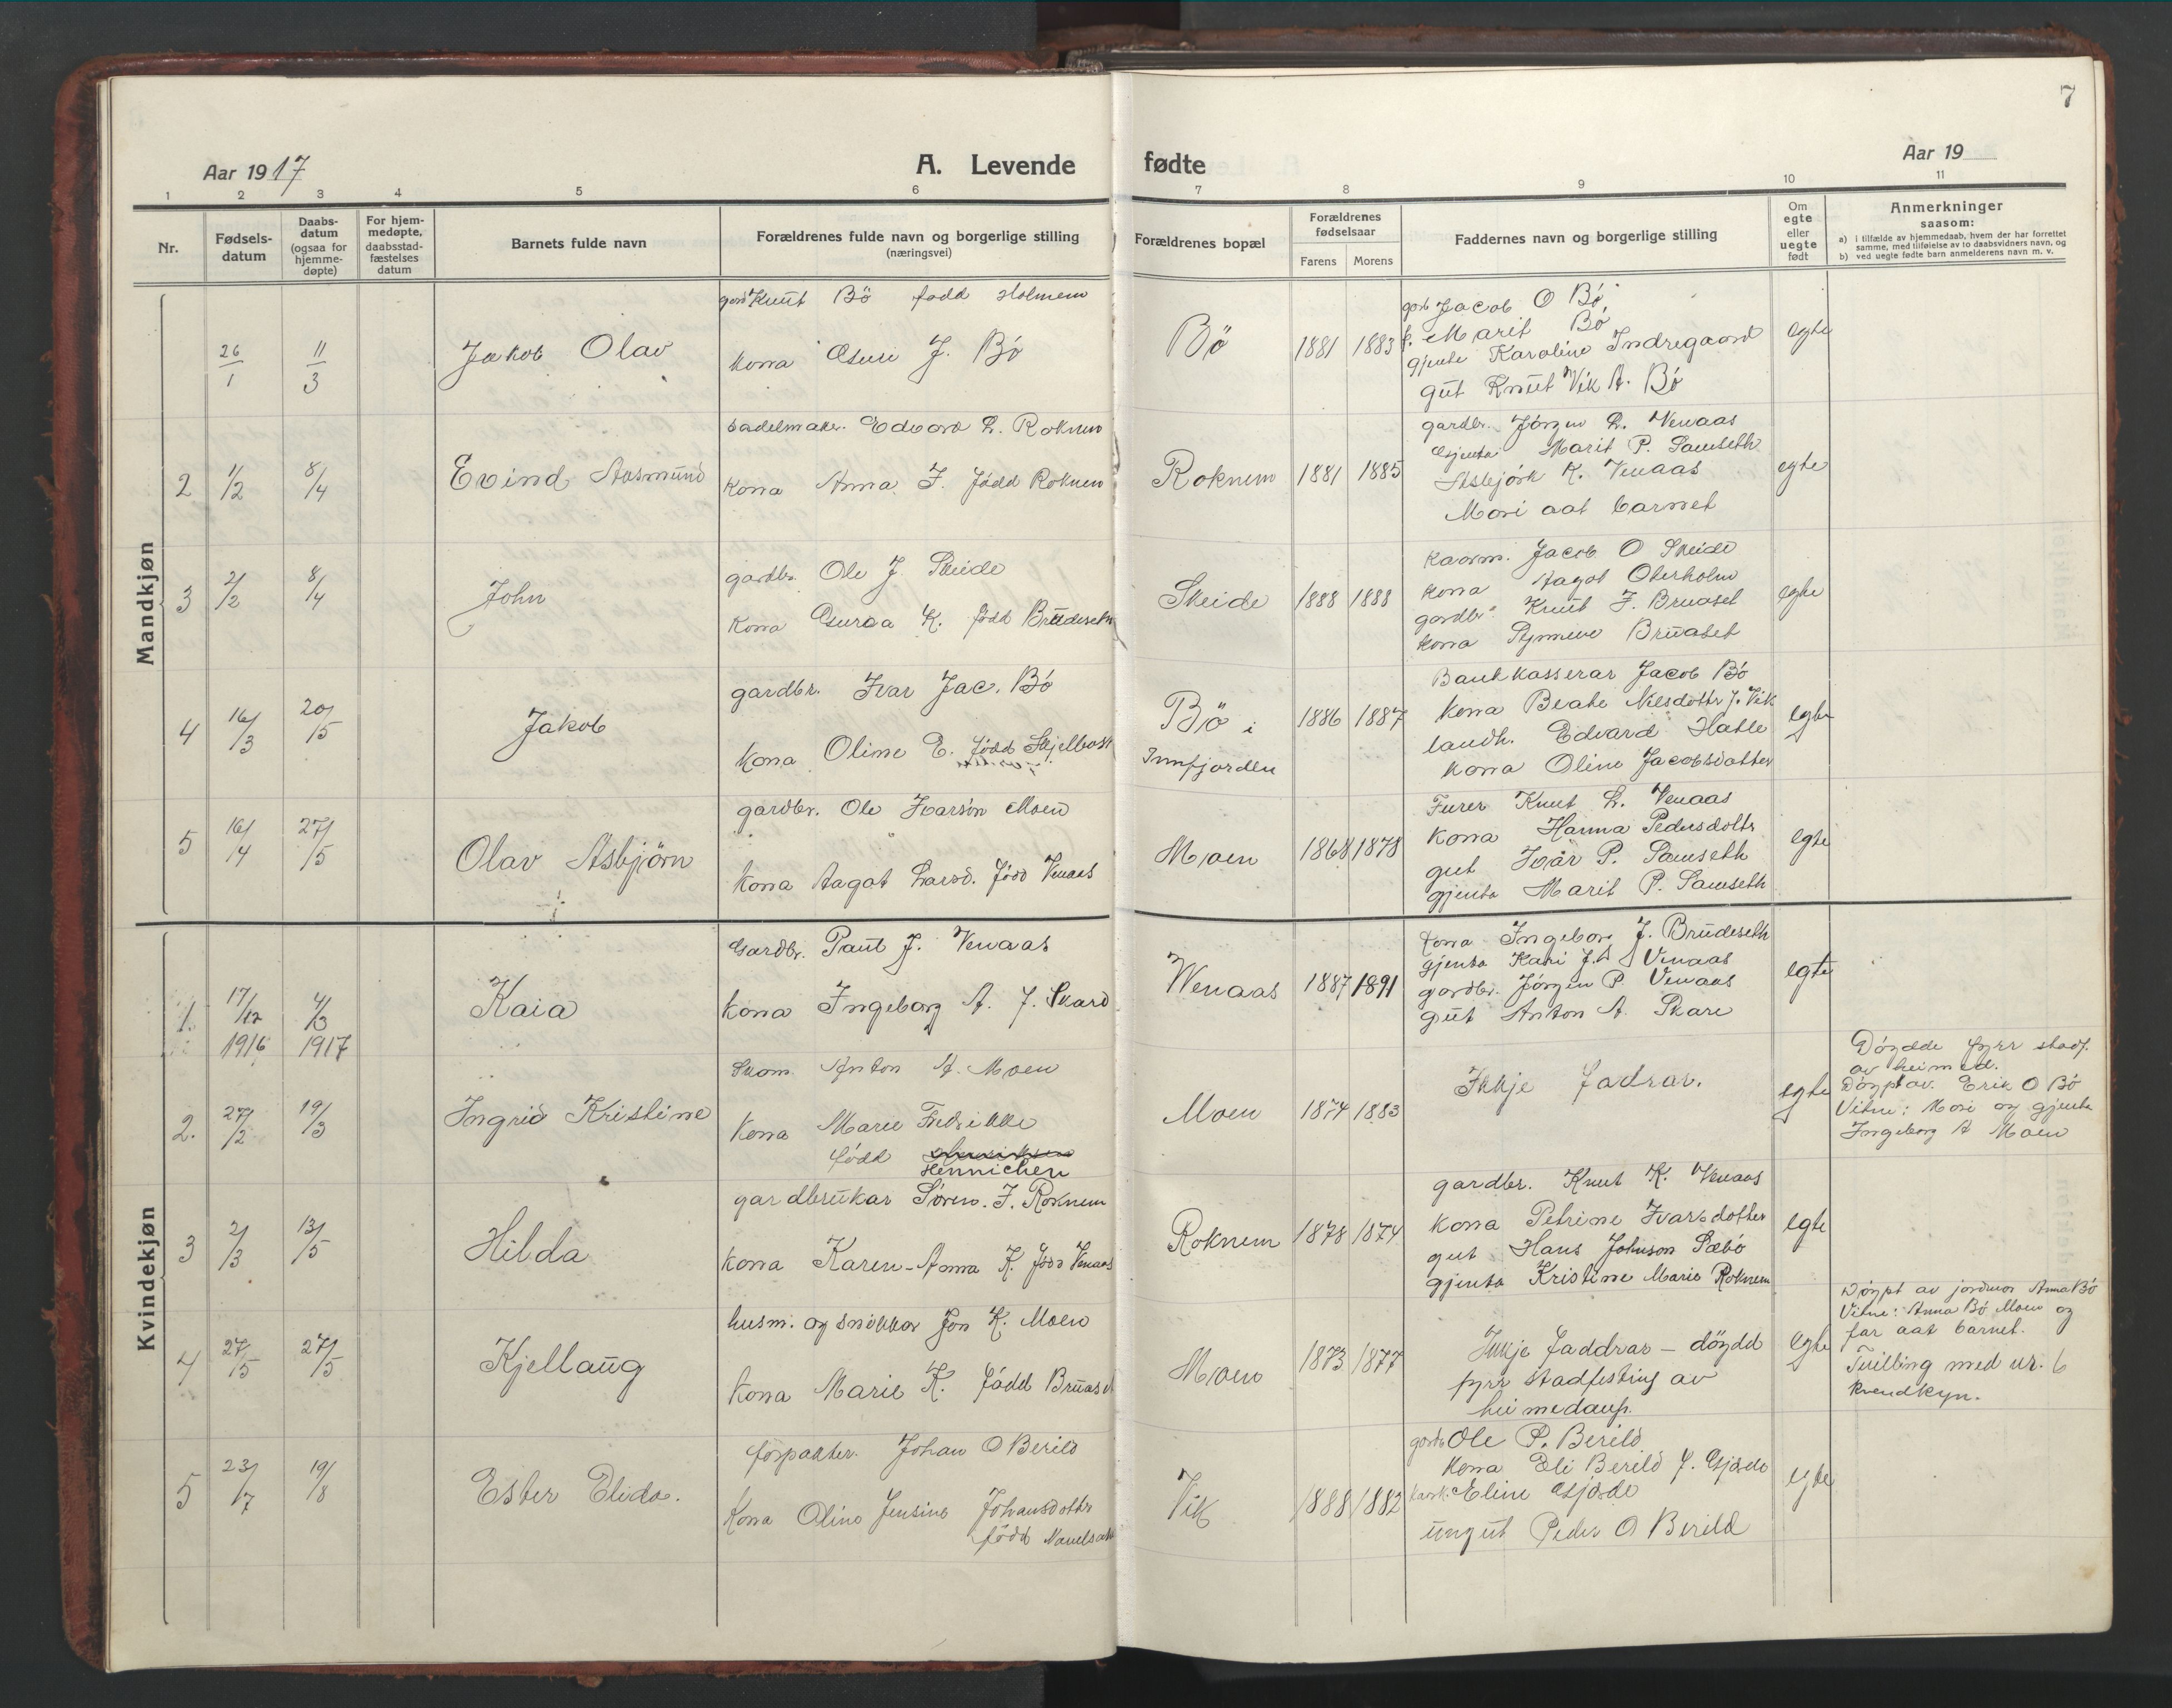 7
Aar 1917
A. Levende fødte
Aar 19
1 2 3 4 5 6 7 8 9 10 11
Nr.
Fødsels-
datum
Daabs-
datum
(ogsaa for
hjemme-
døpte)
For hjem-
medøpte,
daabsstad-
fæstelses
datum
Barnets fulde navn
Forældrenes fulde navn og borgerlige stilling
(næringsvei)
Forældrenes bopæl
Forældrenes
fødselsaar
Farens Morens
Faddernes navn og borgerlige stilling
Om
egte
eller
uegte
født
Anmerkninger
saasom:
a) i tilfælde av hjemmedaab, hvem der har forrettet
samme, med tilføielse av to daabsvidners navn, og
b) ved uegte fødte barn anmelderens navn m. v.
Mandkjøn
26/1 11/3
Jakob Olav
Knut Bö fødd Holmem
kona J. Bö
Bö
1881 1883
Jacob O Bö
Marit Bö
gjenta Karoline Indregaard
gut Knut Vik A. Bö
egte
2 1/2 8/4
Evind Aasmund
sadelmaker. Edvard L. Roknem
Kona Anna J. född Roknem
Roknem
1881 1885
gardbr. Jörgen L. Venaas
Gjenta Marit P. Samseth
Asbjörk K. Venaas
Mori aat barnet
egte
3 2/2 8/4
John
gardbr. Ole J. Skeide
Kona Guroa K. född Brudeseth
Skeide
1888 1888
kaarm. Jacob O Skeide
kona Aagot Oterholm
gardbr. Knut J. Bruaset
kona Synneve Bruaset
egte
4 16/3 20/5
Jakob
gardbr. Ivar Jac. Bö
Kona Oline E. född Skjelbost
Bö i
Innfjorden
1886 1887
Bankkasserar Jacob Bö
Kona Beate Nilsdotter f. Vik
landh. Edvard Hatle
kona Oline Jacobsdotter
egte
5 16/4 27/5
Olav Asbjörn
gardbr. Ole Ivarsön Moen
Kona Aagot Larsd. född Venaas
Moen
1868 1878
Furer Knut L. Venaas
Kona Hanna Pedersdotter
gut Ivar P. Samseth
gjenta Marit P. Samseth
egte
Kvindekjøn
1. 17/12 1916 4/3 1917
Kaia
Gardbr. Paul J. Venaas
kona Ingeborg A. f. Skard
Wenaas
1887 1891
kona Ingeborg J. Brudeseth
gjenta Kari J. Venaas
gardbr. Jörgen P. Venaas
gut Anton A. Skare
egte
2. 27/2 19/3
Ingrid Kristine
Skom. Anton A. Moen
Kona Marie Fredrikke
född Hennichen
Moen
1874 1883
Ikkje fadrar.
egte
Döydde fyrr stadf.
av heimed.
Döypt av. Erik O Bö
Vitne: Mori og gjenta
Ingeborg A Moen
3 2/3 13/5
Hilda
gardbrukar Sören. J. Roknem
kona Karen-Anna K. född Venaas
Roknem
1878 1874
gardbr. Knut K. Venaas
kona Petrine Ivarsdotter
gut Hans Johnson Sæbö
gjenta Kristine Marie Roknem
egte
4 27/5 27/5
Kjellaug
husm. og snikkar Jon K. Moen
kona Marie K. född Bruaset
Moen
1873 1877
Ikkje faddrar – döydd
fyrr stadfesting av
heimedaup.
egte
Döypt av jordmor Anna Bö
Vitne: Anna Bö Moen og
far aat barnet.
Tvilling med nr. 6
kvendkyn.
5 23/7 19/8
Ester Elida.
forpakter. Johan O Berild
Kona Oline Jensine Johansdotter
född
Vik
1888 1882
gardb Ole P. Berild
Kona Eli Berild f. Gjerde
Eline Gjerde
ungut Peder O Berild
egte